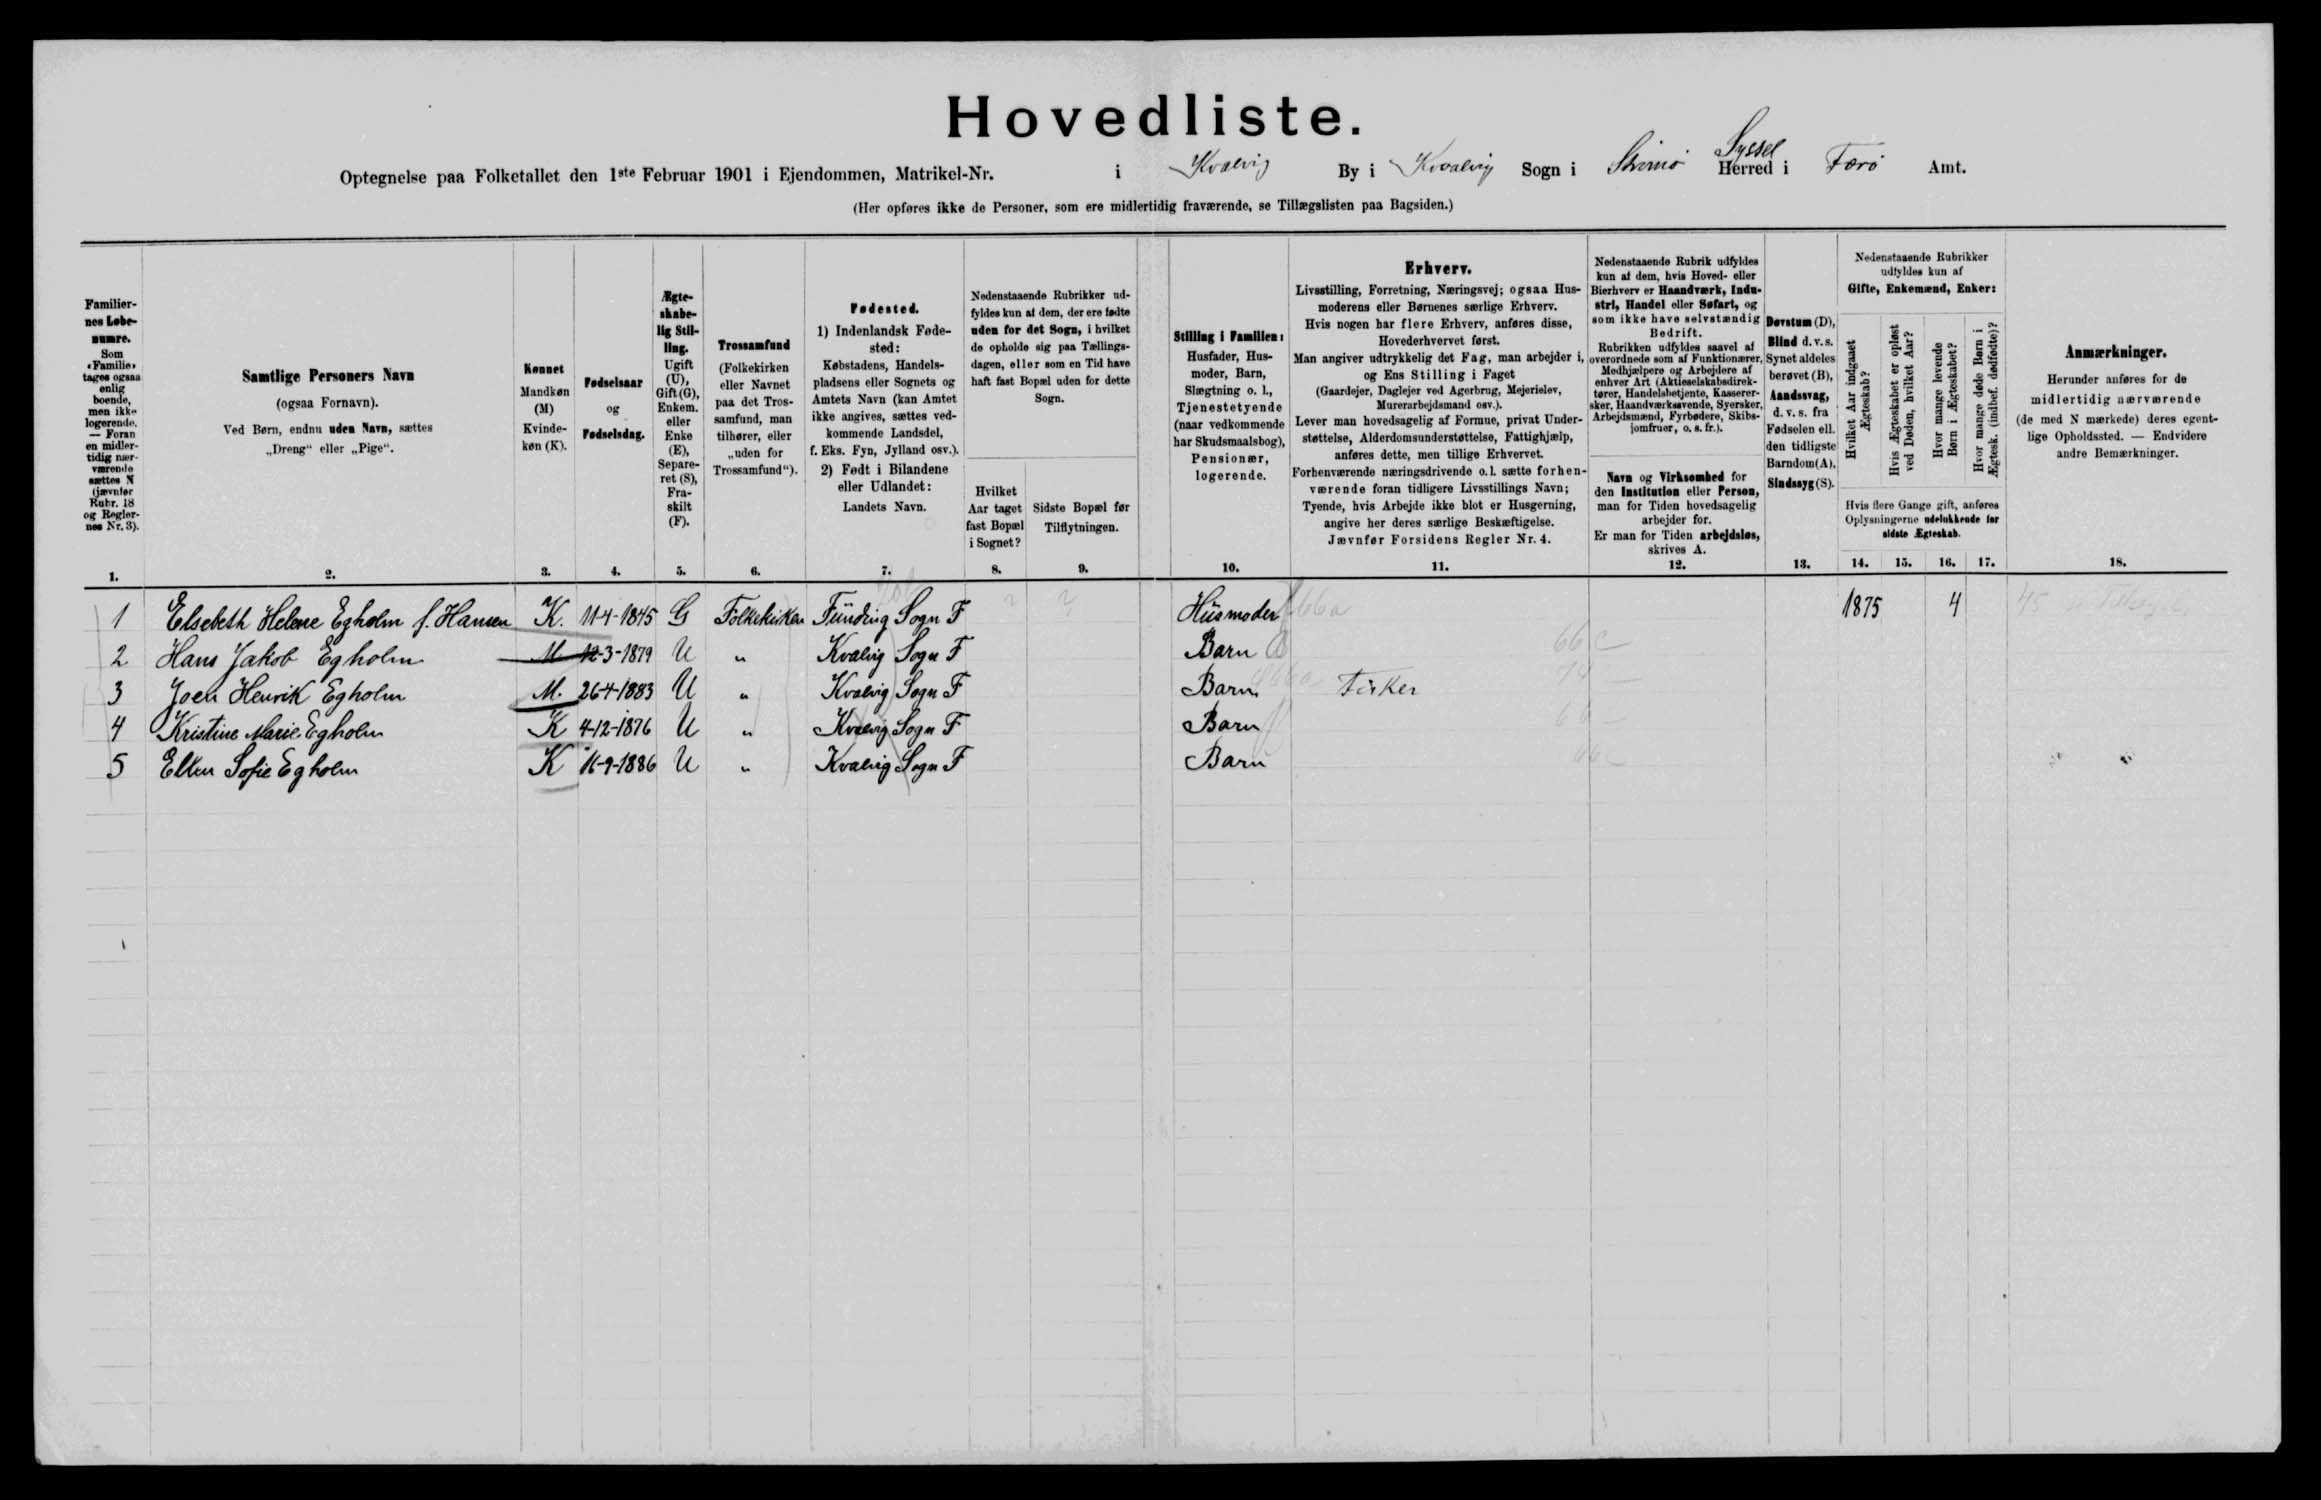 Hovedliste.
Syssel
Optegnelse paa Folketallet den 1ste Februar 1901 i Ejendommen, Matrikel-Nr. i Kvalvig By i Kvalvig Sogn i Strømø Herred i Færø Amt.
(Her opføres ikke de Personer, som ere midlertidig fraværende, se Tillægslisten paa Bagsiden.)
Familier-
nes Løbe-
numre.
Som
«Familie»
tages ogsaa
enlig
boende,
men ikke
logerende.
— Foran
en midler-
tidig nær-
værende
sættes N
(jævnfør
Rubr. 18
og Regler-
nes Nr. 3).
1.
Samtlige Personers Navn
(ogsaa Fornavn).
Ved Børn, endnu uden Navn, sættes
„Dreng“ eller „Pige“.
2.
Kønnet
Mandkøn
(M)
Kvinde-
køn (K).
3.
Fødselsaar
og
Fødselsdag.
4.
Ægte-
skabe-
lig Stil-
ling.
Ugift
(U),
Gift (G),
Enkem.
eller
Enke
(E),
Separe-
ret (S),
Fra-
skilt
(F).
5.
Trossamfund
(Folkekirken
eller Navnet
paa det Tros-
samfund, man
tilhører, eller
„uden for
Trossamfund“).
6.
Fødested.
1) Indenlandsk Føde-
sted:
Købstadens, Handels-
pladsens eller Sognets og
Amtets Navn (kan Amtet
ikke angives, sættes ved-
kommende Landsdel,
f. Eks. Fyn, Jylland osv.).
2) Født i Bilandene
eller Udlandet:
Landets Navn.
7.
Nedenstaaende Rubrikker ud-
fyldes kun af dem, der ere fødte
uden for det Sogn, i hvilket
de opholde sig paa Tællings-
dagen, eller som en Tid have
haft fast Bopæl uden for dette
Sogn.
Hvilket
Aar taget
fast Bopæl
i Sognet?
8.
Sidste Bopæl før
Tilflytningen.
9.
Stilling i Familien:
Husfader, Hus-
moder, Barn,
Slægtning o. l.,
Tjenestetyende
(naar vedkommende
har Skudsmaalsbog),
Pensionær,
logerende.
10.
Erhverv.
Livsstilling, Forretning, Næringsvej; ogsaa Hus-
moderens eller Børnenes særlige Erhverv.
Hvis nogen har flere Erhverv, anføres disse,
Hovederhvervet først.
Man angiver udtrykkelig det Fag, man arbejder i,
og Ens Stilling i Faget
(Gaardejer, Daglejer ved Agerbrug, Mejerielev,
Murerarbejdsmand osv.).
Lever man hovedsagelig af Formue, privat Under-
støttelse, Alderdomsunderstøttelse, Fattighjælp,
anføres dette, men tillige Erhvervet.
Forhenværende næringsdrivende o. l. sætte forhen-
værende foran tidligere Livsstillings Navn;
Tyende, hvis Arbejde ikke blot er Husgerning,
angive her deres særlige Beskæftigelse.
Jævnfør Forsidens Regler Nr. 4.
11.
Nedenstaaende Rubrik udfyldes
kun af dem, hvis Hoved- eller
Bierhverv er Haandværk, Indu-
stri, Handel eller Søfart, og
som ikke have selvstændig
Bedrift.
Rubrikken udfyldes saavel af
overordnede som af Funktionærer,
Medhjælpere og Arbejdere af
enhver Art (Aktieselskabsdirek-
tører, Handelsbetjente, Kasserer-
sker, Haandværkssvende, Syersker,
Arbejdsmænd, Fyrbødere, Skibs-
jomfruer, o. s. fr.).
Navn og Virksomhed for
den Institution eller Person,
man for Tiden hovedsagelig
arbejder for.
Er man for Tiden arbejdsløs,
skrives A.
12.
Døvstum (D),
Blind d. v. s.
Synet aldeles
berøvet (B),
Aandssvag,
d. v. s. fra
Fødselen ell.
den tidligste
Barndom (A),
Sindssyg (S).
13.
Nedenstaaende Rubrikker
udfyldes kun af
Gifte, Enkemænd, Enker:
Hvilket Aar indgaaet
Ægteskab?
Hvis Ægteskabet er opløst
ved Døden, hvilket Aar?
Hvor mange levende
Børn i Ægteskabet?
Hvor mange døde Børn i
Ægtesk. (indbef. dødfødte)?
Hvis flere Gange gift, anføres
Oplysningerne udelukkende for
sidste Ægteskab.
14. 15. 16. 17.
Anmærkninger.
Herunder anføres for de
midlertidig nærværende
(de med N mærkede) deres egent-
lige Opholdssted. — Endvidere
andre Bemærkninger.
18.
1 Elsebeth Helene Egholm f. Hansen K. 11-4-1845 G Folkekirken Funding Sogn F Husmoder 66a 1875 4
2 Hans Jakob Egholm M 12-3-1879 U " Kvalvig Sogn F Barn 66 c
3 Joen Henrik Egholm M. 26-4-1883 U " Kvalvig Sogn F Barn Fisker
4 Kristine Marie Egholm K 4-12-1876 U " Kvalvig Sogn F Barn
5 Ellen Sofie Egholm K 16-9-1886 U " Kvalvig Sogn F Barn